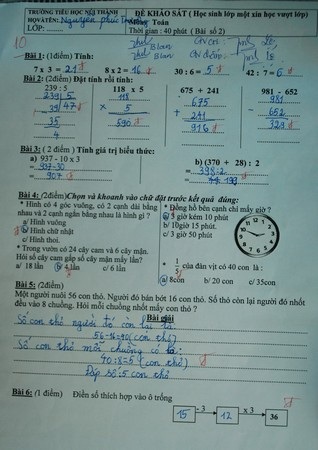 TRƯỜNG TIỂU HỌC NÚI THÀNH
ĐỀ KHẢO SÁT ( Học sinh lớp một xin học vượt lớp)
HỌ VÀ TÊN: Nguyễn phúc
Môn: Toán
LỚP:
Thời gian : 40 phút ( Bài số 2)
10
Bài 1: (1điểm) Tính:
7 x 3 = 21 8 x 2 = 16 30 : 6 = 5 42 : 7 = 6
Bài 2: (2điểm) Đặt tính rồi tính:
239 : 5 118 x 5 675 + 241 981 - 652
239 5 118 675 981
39 47 x 5 + 241 - 652
35 590 916 329
4
Bài 3: ( 2 điểm ) Tính giá trị biểu thức:
a) 937 - 10 x 3 b) (370 + 28) : 2
= 937-30 = 398:2
= 907 = 199
Bài 4: (2điểm)Chọn và khoanh vào chữ đặt trước kết quả đúng:
* Hình có 4 góc vuông, có 2 cạnh dài bằng
nhau và 2 cạnh ngắn bằng nhau là hình gì ?
a/ Hình vuông
b/ Hình chữ nhật
c/ Hình thoi.
* Đồng hồ bên cạnh chỉ mấy giờ ?
a/ 5 giờ kém 10 phút
b/ 10giờ 15 phút.
c/ 3 giờ 50 phút
* Trong vườn có 24 cây cam và 6 cây mận.
Hỏi số cây cam gấp số cây mận mấy lần?
a/ 18 lần b/ 4 lần c/ 6 lần
* 1/5 của đàn vịt có 40 con là :
a/ 8con b/ 20 con c/ 35con
Bài 5: (2điểm)
Một người nuôi 56 con thỏ. Người đó bán bớt 16 con thỏ. Số thỏ còn lại người đó nhốt
đều vào 8 chuồng. Hỏi mỗi chuồng nhốt mấy con thỏ ?
Bài giải
Số con thỏ người đó còn lại là:
56-16=40(con thỏ)
Số con thỏ mỗi chuồng có là:
40:8=5(con thỏ)
Đáp số:5 con thỏ
Bài 6: (1 điểm) Điền số thích hợp vào ô trống
15 - 3 12 x 3 36